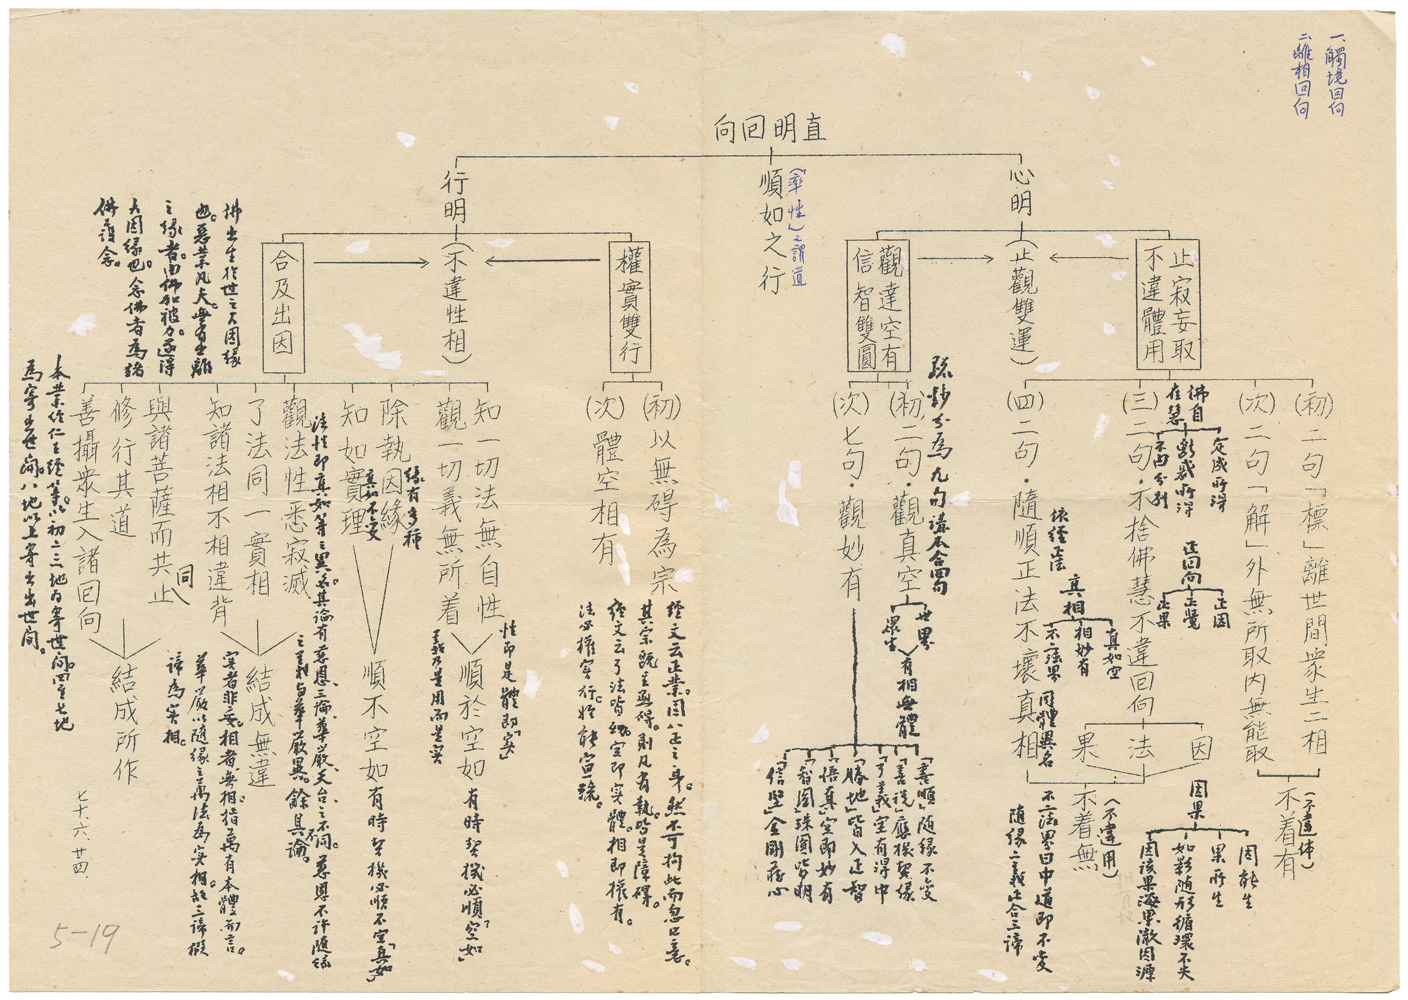 一、觸境回向
二、離相回向
直明回向
心明
(止觀雙運)
順如之行
(「率性」之謂道
行明
(不違性相)
止寂妄取
不違體用
觀達空有
信智雙圓
權實雙行
合及出因
(初)二句「標」離世間眾生二相
(次)二句「解」外無所取內無能取
(三)二句·不捨佛慧不違回向
(四)二句·隨順正法不壞真相
不着有
(不違体)
因
法
果
不着無
(不違用)
佛自
在慧
定成所得
斷惑所得
不由分別
正回向
正因
正覺
正果
依經正法
真相
真如空
相妙有
不二法界
同體異名
因果
因能生
果所生
如影随形循環不失
因該果海果澈因源
不二法界曰中道即不變
随缘二義此合三諦
(初)二句·觀真空
(次)七句·觀妙有
疏鈔分為九句講本合四句
世界
眾生
有相無體
「善順」随缘不变
「善说」應機契缘
「了義」空有得中
「勝地」皆入正智
「悟真」空即妙有
「智圆」珠圆皆明
「信堅」金剛存心
(初)以無碍為宗
(次)體空相有
經文云正業。因八正之身。然不可拘此而忽口意。
其宗既主無碍。則凡有執。皆是障碍。
經文云了法皆幻。空即实體。相即權有。
法必權实行。始能宣揚。
知一切法無自性
觀一切義無所着
順於空如
性即是體即「实」
義乃是用而是实
有時契機必順「空如」
除執因緣
知如實理
缘有多種
真如不变
順不空如
有時契機必順不空「真如」
觀法性悉寂滅
了法同一實相
知諸法相不相違背
結成無違
法性即真如等之異名。其論有慈恩、三論、華嚴、天台之不同。慈恩不許随缘
之義与華嚴異。餘具論。
实者非妄。相者無相。指萬有本體而言。
華嚴以随缘之萬法為实相。故三諦擬
諦為实相。
與諸菩薩而共止
同
修行其道
善攝眾生入諸回向
結成所作
佛出生於世之大因缘
也。惡業凡夫。無有出離
之缘者。由佛加被力。遂得
大因缘也。念佛者為諸
佛護念。
本業经仁王经等。以初二三地为寄世间。四至七地
為寄出世间。八地以上寄出出世间。
七六、六、廿四
5-19